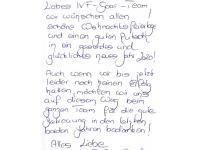 Liebes IVF-Saar-Team,
wir wünschen allen
schöne Weihnachtsfeiertage
und einen guten Rutsch
in ein gesundes und
glückliches neues Jahr 2020!
Auch wenn wir bis jetzt
leider noch keinen Erfolg
hatten, möchten wir uns
auf diesem Weg beim
ganzen Team für die gute
Betreuung in den letzten
beiden Jahren bedanken!
Alles Liebe